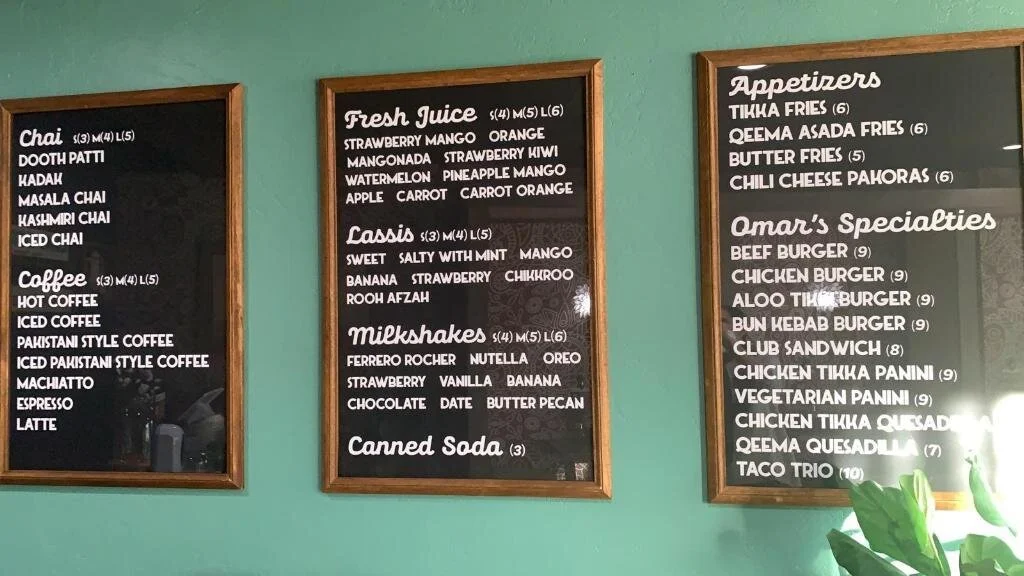 Chai S(3) M(4) L(5)
DOOTH PATTI
KADAK
MASALA CHAI
KASHMIRI CHAI
ICED CHAI
Coffee S(3) M(4) L(5)
HOT COFFEE
ICED COFFEE
PAKISTANI STYLE COFFEE
ICED PAKISTANI STYLE COFFEE
MACHIATTO
ESPRESSO
LATTE
Fresh Juice S(4) M(5) L(6)
STRAWBERRY MANGO ORANGE
MANGONADA STRAWBERRY KIWI
WATERMELON PINEAPPLE MANGO
APPLE CARROT CARROT ORANGE
Lassis S(3) M(4) L(5)
SWEET SALTY WITH MINT MANGO
BANANA STRAWBERRY CHIKKROO
ROOH AFZAH
Milkshakes S(4) M(5) L(6)
FERRERO ROCHER NUTELLA OREO
STRAWBERRY VANILLA BANANA
CHOCOLATE DATE BUTTER PECAN
Canned Soda (3)
Appetizers
TIKKA FRIES (6)
QEEMA ASADA FRIES (6)
BUTTER FRIES (5)
CHILI CHEESE PAKORAS (6)
Omar's Specialties
BEEF BURGER (9)
CHICKEN BURGER (9)
ALOO TIKKI BURGER (9)
BUN KEBAB BURGER (9)
CLUB SANDWICH (8)
CHICKEN TIKKA PANINI (9)
VEGETARIAN PANINI (9)
CHICKEN TIKKA QUESADILLA
QEEMA QUESADILLA (7)
TACO TRIO (10)